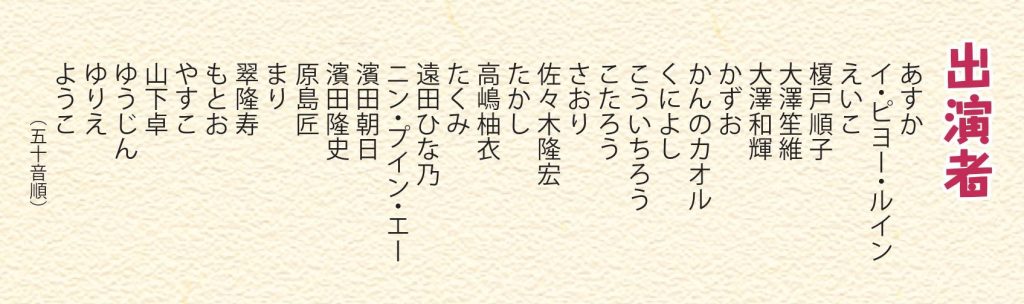 出演者
あすか
イ・ピヨー・ルイン
えいこ
榎戸順子
大澤笙維
大澤和輝
かずお
かんのカオル
くによし
こういちろう
こたろう
さおり
佐々木隆宏
たかし
高嶋柚衣
たくみ
遠田ひな乃
ニン・プイン・エー
濱田朝日
濱田隆史
原島匠
まり
翠隆寿
もとお
やすこ
山下卓
ゆうじん
ゆりえ
ようこ
（五十音順）